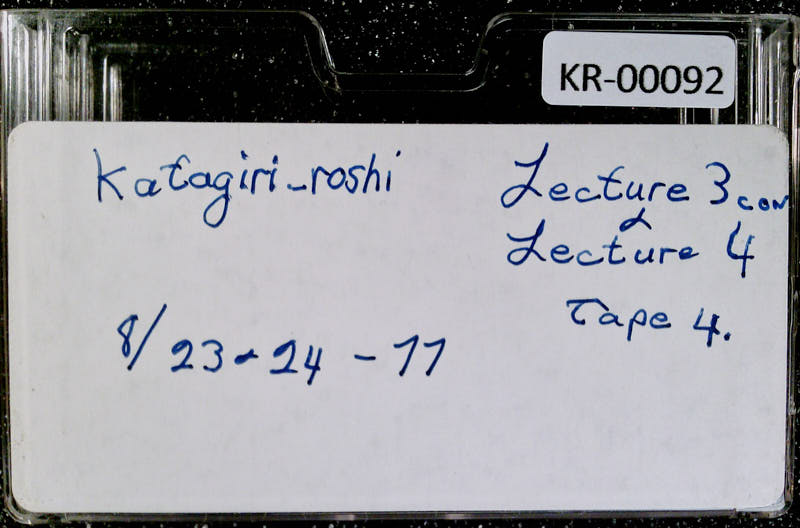 KR-00092
Katagiri-roshi
Lecture 3 con
&
Lecture 4
Tape 4.
8/23-24-77